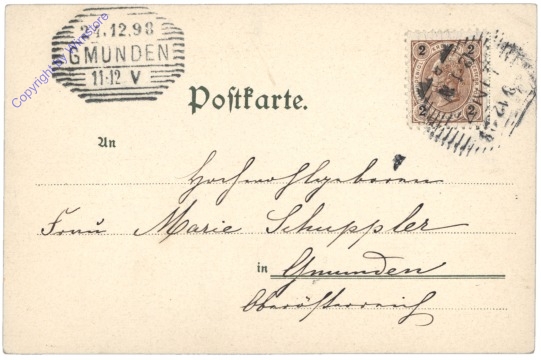 24.12.98
GMUNDEN
11-12 V
2 2
2 2
Postkarte.
An
Hochwohlgeboren
Frau Marie Schuppler
in Gmunden
Oberösterreich